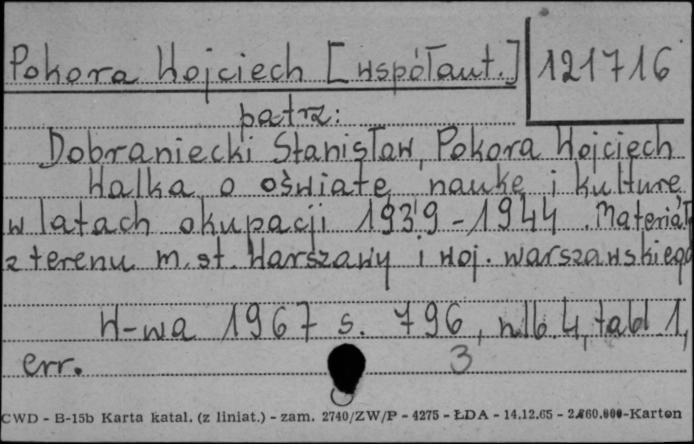 Pokora Wojciech [współaut.] 121716
patrz:
Dobraniecki Stanisław, Pokora Wojciech
Walka o oświatę naukę i kulturę
w latach okupacji 1939-1944. Materiał
z terenu m.st. Warszawy i woj. warszawskiego
W-wa 1967 s. 796, nlb. 4, tabl 1,
err. 3
CWD - B-15b Karta katal. (z liniat.) - zam. 2740/ZW/P - 4275 - ŁDA - 14.12.65 - 2.860.000-Karton